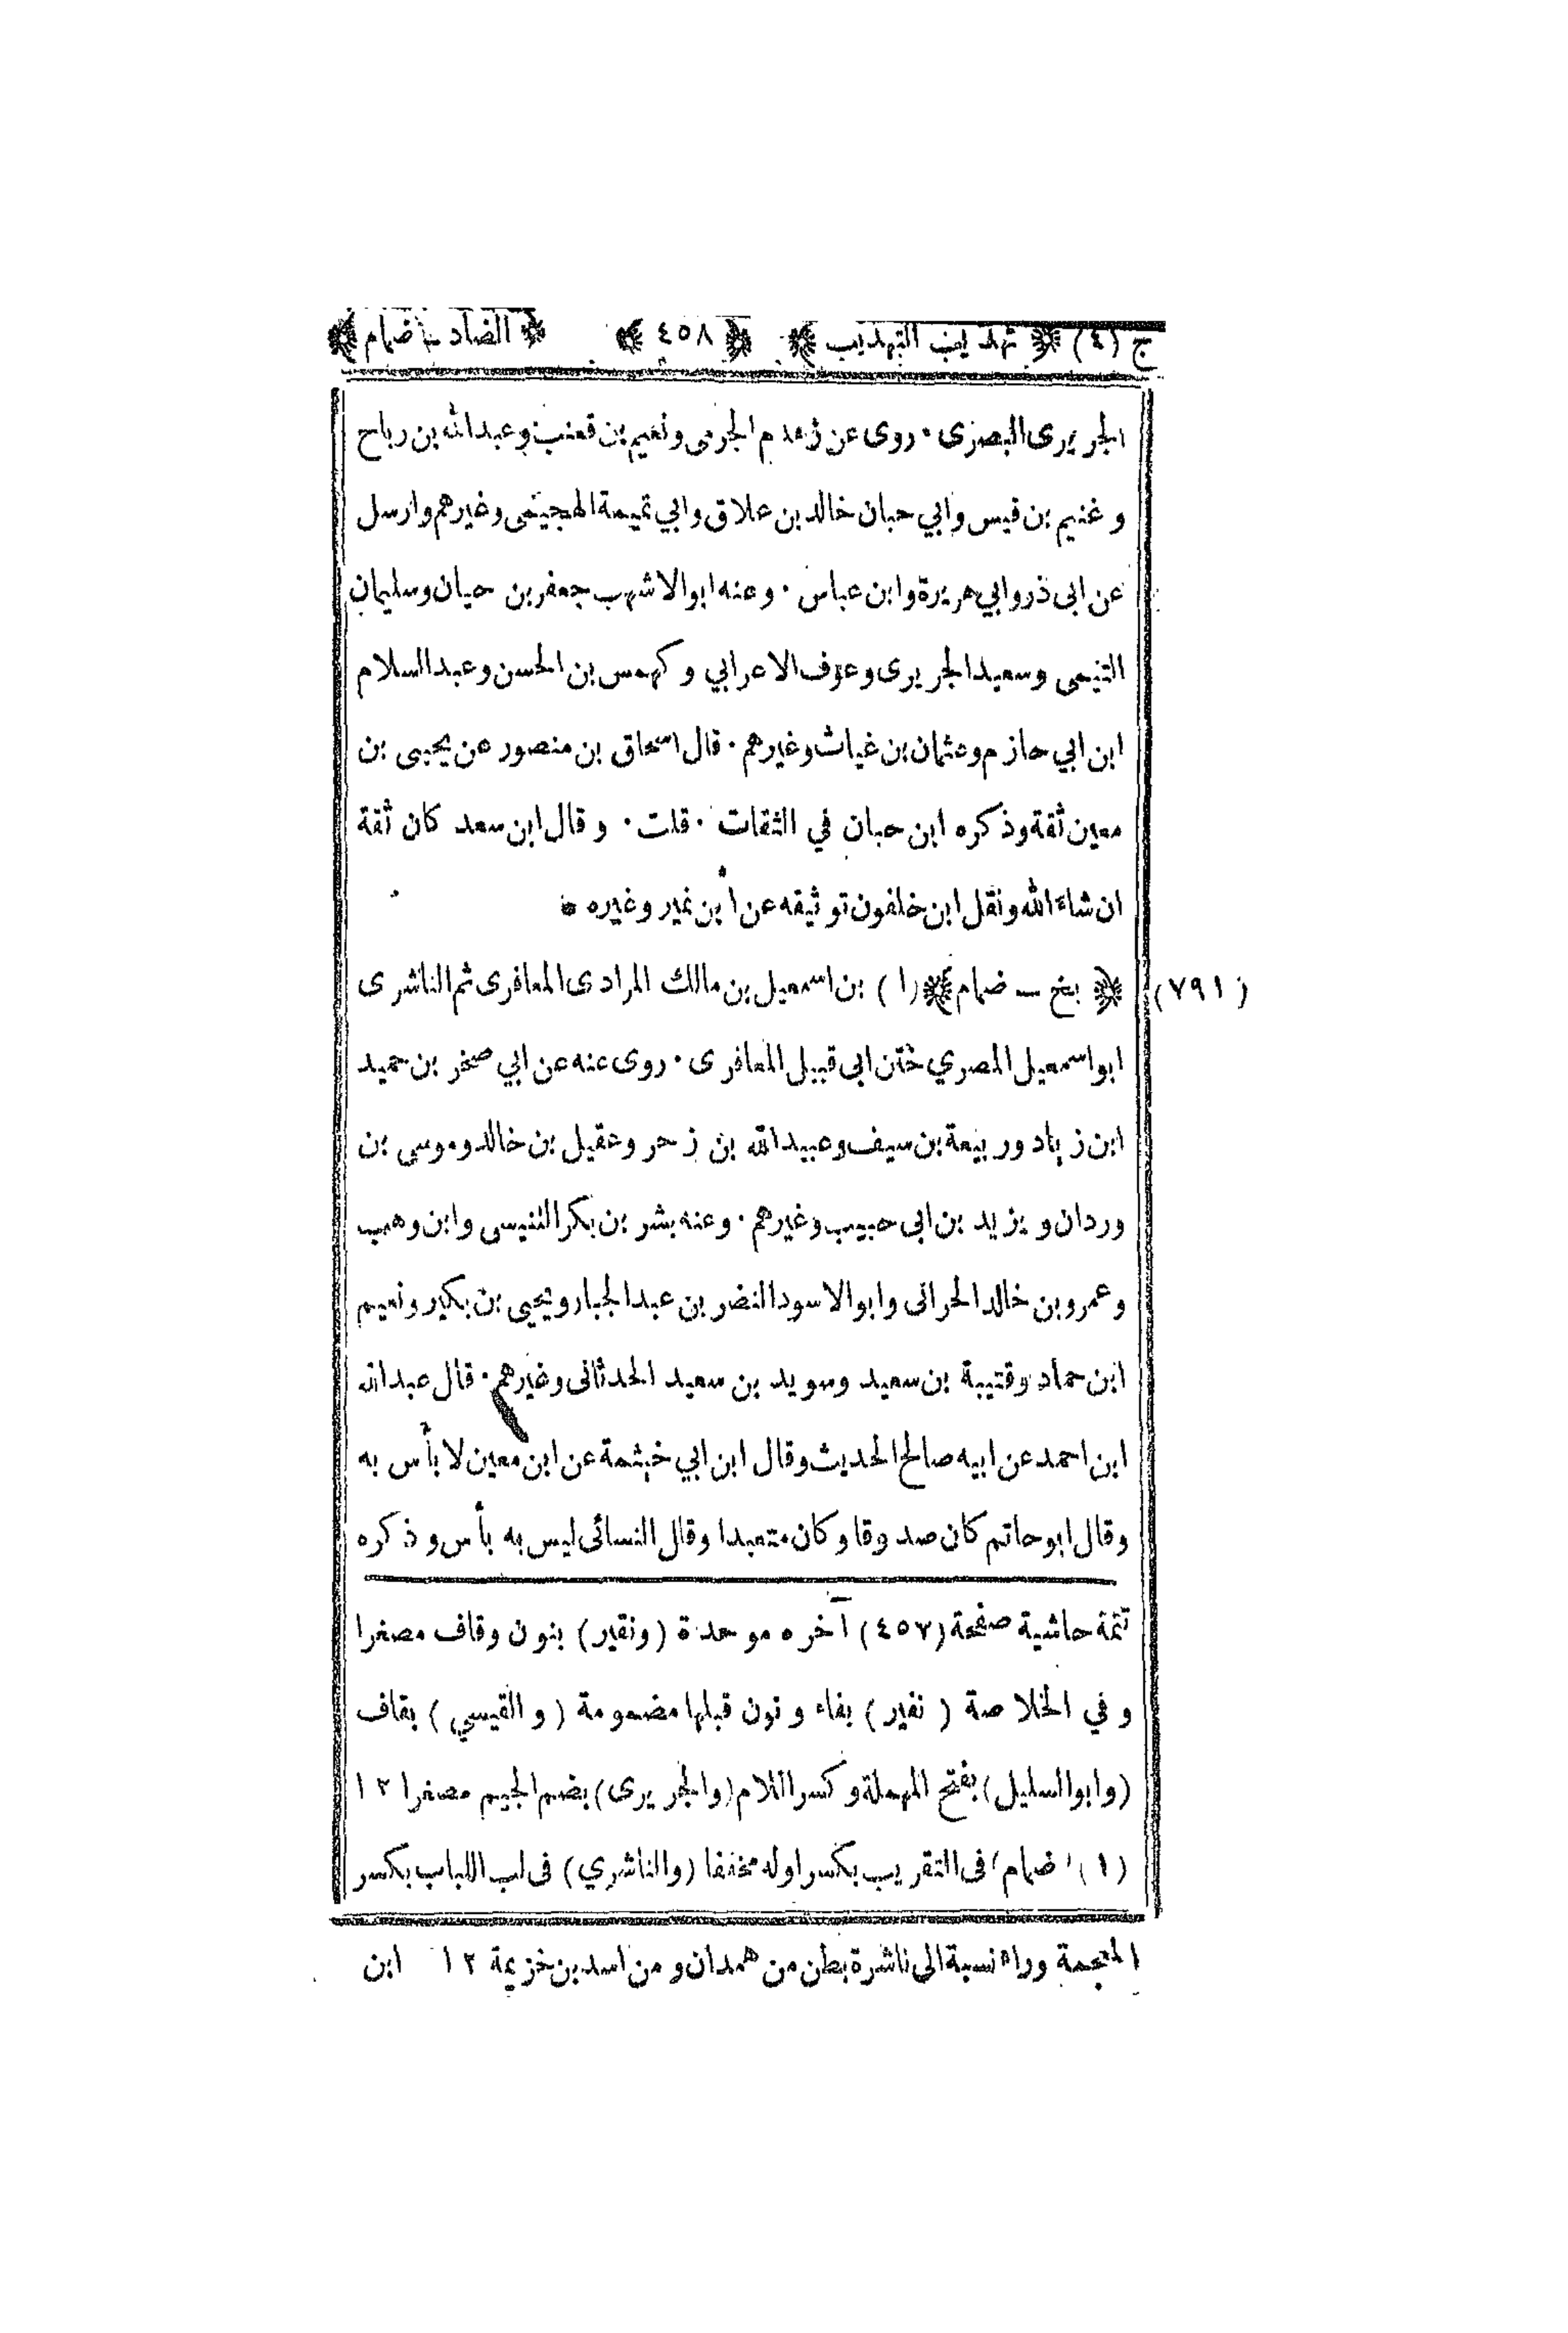 ج (٤) ﴿ تهذيب التهذيب ﴾ ﴿ ٤٥٨ ﴾ ﴿ الضاد ـ ضمام ﴾
الجريرى البصرى ٠ روى عن زهدم الجرمى ونعيم بن قعنب وعبدالله بن رباح
وغنيم بن قيس وابي حبان خالد بن علاق وابي تميمة الهجيمى وغيرهم وارسل
عن ابى ذر وابي هريرة وابن عباس ٠ وعنه ابو الاشهب جعفر بن حيان وسليمان
التيمى وسعيد الجريرى وعوف الاعرابي وكهمس بن الحسن وعبد السلام
ابن ابي حازم وعثمان بن غياث وغيرهم ٠ قال اسحاق بن منصور عن يحيى بن
معين ثقة وذكره ابن حبان في الثقات ٠ قلت ٠ وقال ابن سعد كان ثقة
ان شاء الله ونقل ابن خلفون توثيقه عن ابن نمير وغيره *
(٧٩١) ﴿ بخ ـ ضمام ﴾ (١) بن اسمعيل بن مالك المرادى المعافرى ثم الناشرى
ابو اسمعيل المصري ختن ابى قبيل المعافرى ٠ روى عنه عن ابي صخر بن حميد
ابن زياد وربيعة بن سيف وعبيد الله بن زحر وعقيل بن خالد وموسى بن
وردان ويزيد بن ابى حبيب وغيرهم ٠ وعنه بشر بن بكر التنيسى وابن وهب
وعمرو بن خالد الحرانى وابو الاسود النضر بن عبد الجبار ويحيى بن بكير ونعيم
ابن حماد وقتيبة بن سعيد وسويد بن سعيد الحدثانى وغيرهم ٠ قال عبد الله
ابن احمد عن ابيه صالح الحديث وقال ابن ابي خيثمة عن ابن معين لا بأس به
وقال ابو حاتم كان صدوقا وكان متعبدا وقال النسائى ليس به بأس وذكره
تتمة حاشية صفحة (٤٥٧) آخره موحدة (ونقير) بنون وقاف مصغرا
وفي الخلاصة (نفير) بفاء ونون قبلها مضمومة (والقيسي) بقاف
(وابو السليل) بفتح المهملة وكسر اللام (والجريرى) بضم الجيم مصغرا ١٢
(١) (ضمام) فى التقريب بكسر اوله مخففا (والناشري) فى لب اللباب بكسر
المعجمة وراء نسبة الى ناشرة بطن من همدان ومن اسد بن خزيمة ١٢ ابن